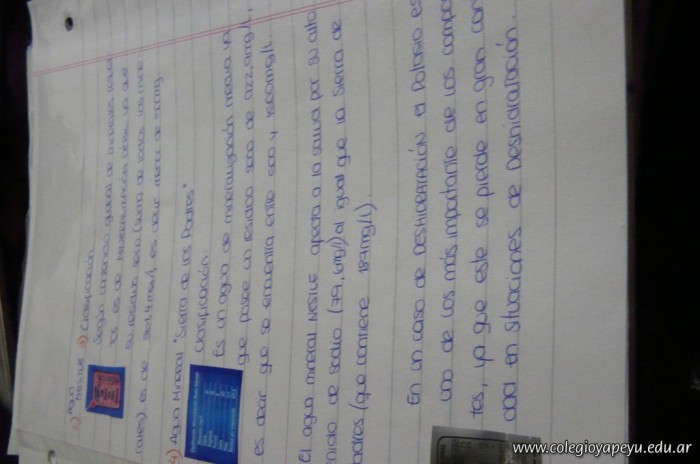 Agua
NESTLE Clasificación
Según contenido global de minerales
es de ya que
su residuo seco (suma de todos los
es de mg/l, es decir menor de
4) Agua Mineral "Sierra de los Padres"
Clasificación:
Es un agua de mineralización media ya
que posee un residuo seco de mg/l,
es decir que se encuentra entre 500 y 1500mg/l.
El agua mineral NESTLE afecta a la salud por su alto
de sodio (79,6mg/l) al igual que la Sierra de
Padres (que contiene 187mg/l).
En un caso de DESHIDRATACIÓN el Potasio es
uno de los más importante de los
ya que este se pierde en gran
en situaciones de Deshidratación.
www.colegioyapeyu.edu.ar